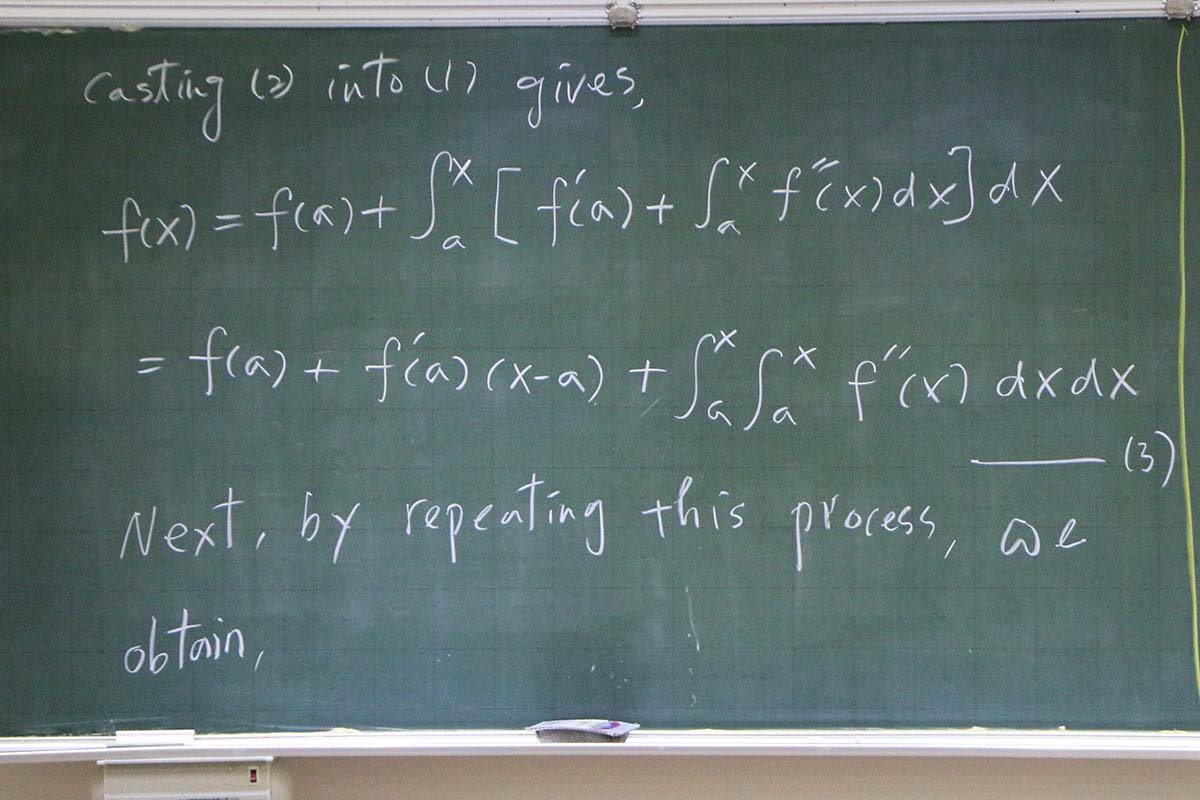 Casting (2) into (1) gives,
f(x) = f(a) + ∫ₐˣ [ f′(a) + ∫ₐˣ f″(x) dx ] dx
= f(a) + f′(a) (x-a) + ∫ₐˣ ∫ₐˣ f″(x) dx dx
——— (3)
Next, by repeating this process, we
obtain,